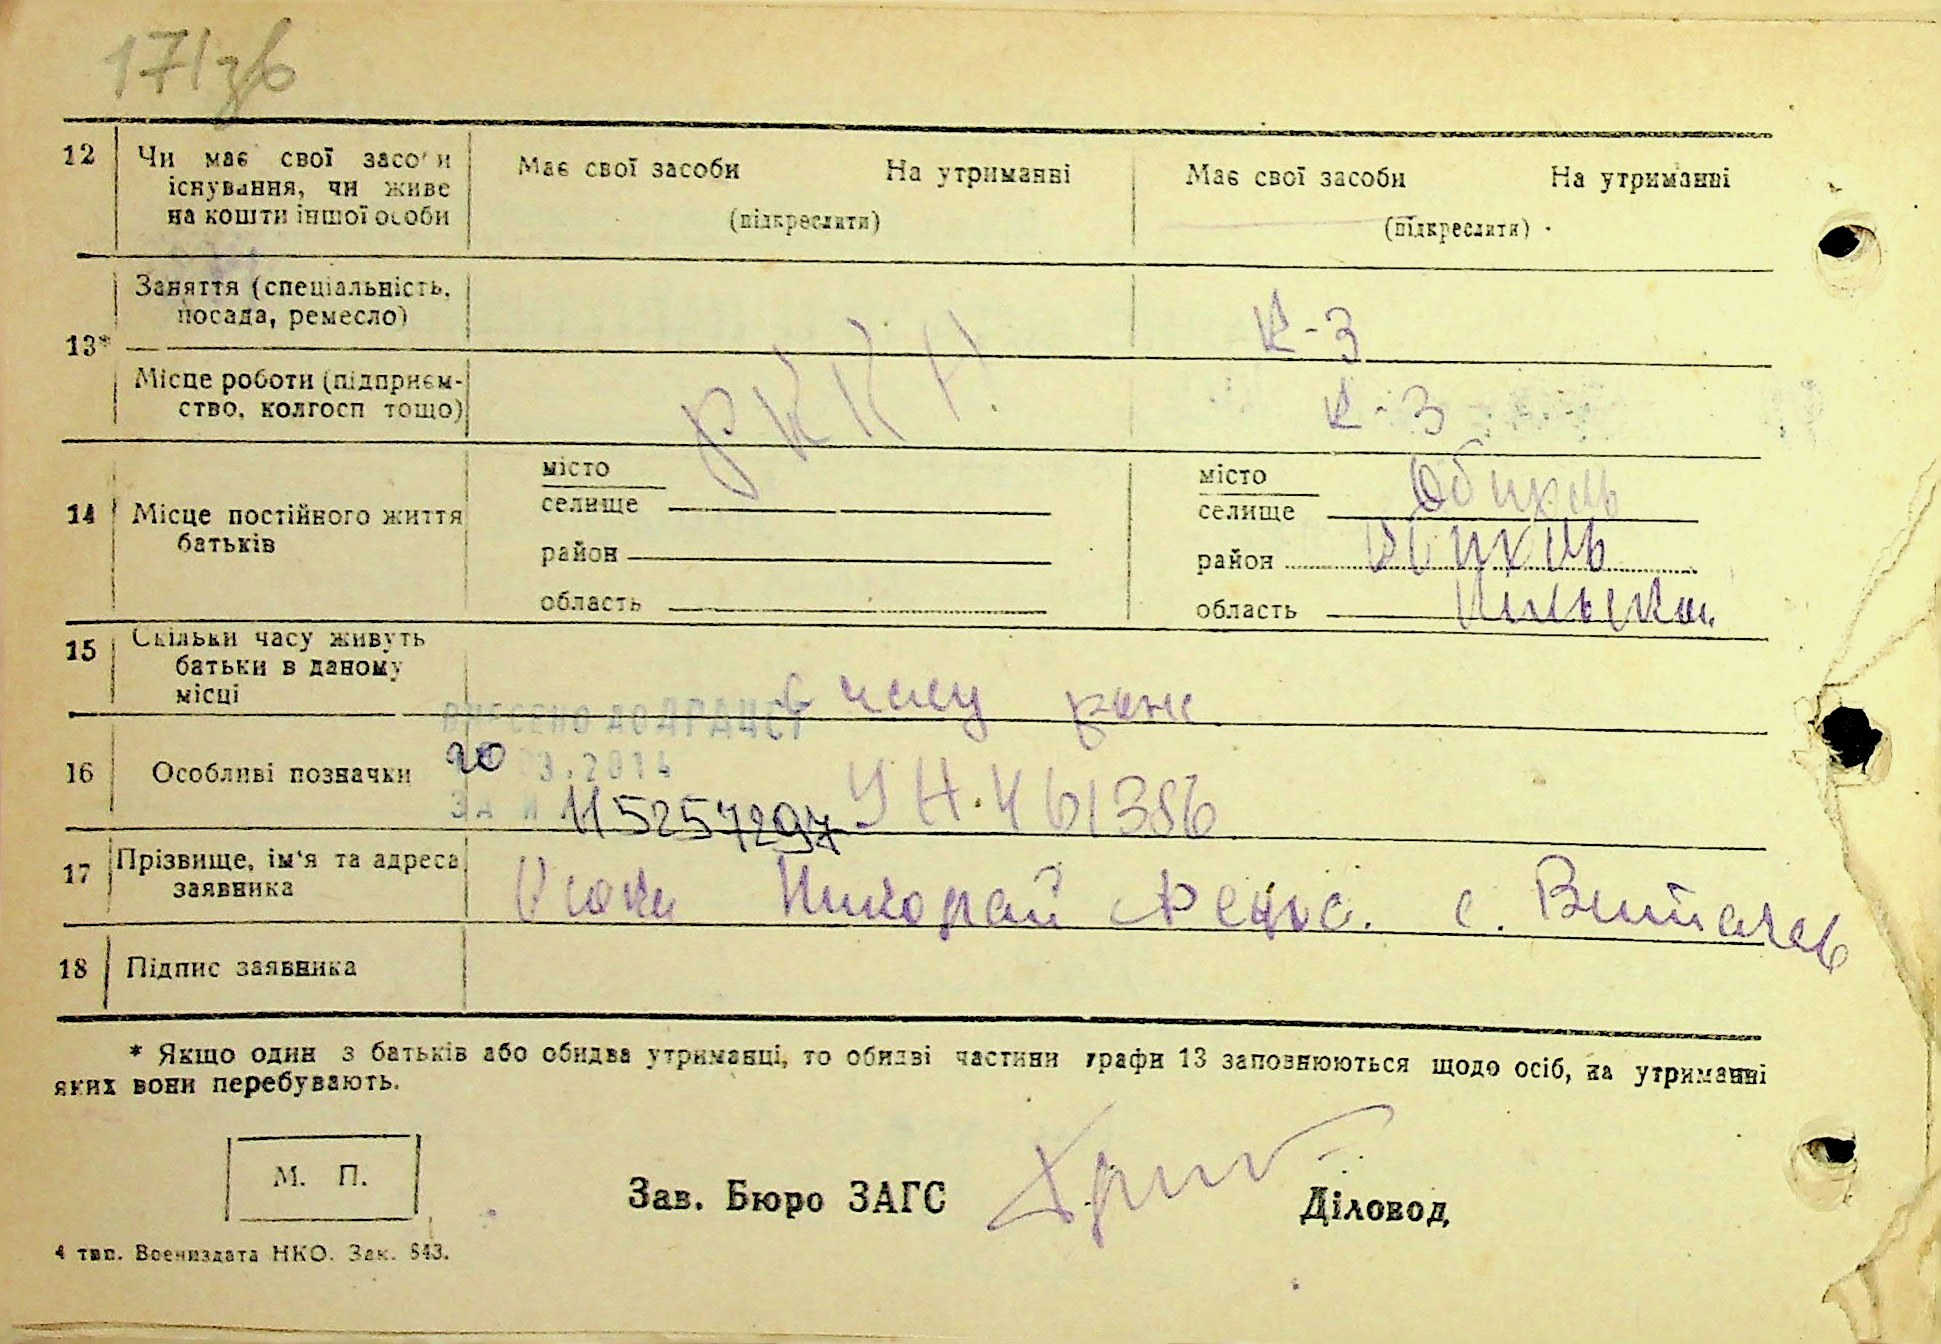 171зв
12 Чи має свої засоби існування, чи живе на кошти іншої особи
Має свої засоби На утриманні
(підкреслити)
Має свої засоби На утриманні
(підкреслити)
13*
Заняття (спеціальність, посада, ремесло)
К-З
Місце роботи (підприємство, колгосп тощо)
РККА
К-З
14 Місце постійного життя батьків
місто
селище
район
область
місто
селище
район
область
15 Скільки часу живуть батьки в даному місці
16 Особливі позначки
ВНЕСЕНО ДО ДРАЦСГ
20 03.2014
ЗА №
115257297
УН. 461386
17 Прізвище, ім'я та адреса заявника
Николай с. Витачев
18 Підпис заявника
* Якщо один з батьків або обидва утриманці, то обидві частини графи 13 заповнюються щодо осіб, на утриманні
яких вони перебувають.
М. П.
Зав. Бюро ЗАГС
Діловод
4 тип. Воениздата НКО. Зак. 543.